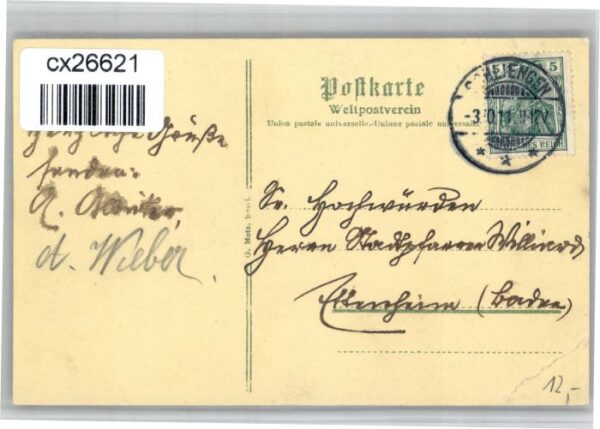 cx26621
Postkarte
Weltpostverein
Union postale universelle.-Unione postale universale
SCHLIENGEN
-3.10.11. 11-12V
5 5
DEUTSCHES REICH
Herzliche Grüße
senden:
A.
A. Wieber.
G. Metz, Basel.
Sr. Hochwürden
Herrn Stadtpfarrer
Ettenheim (Baden)
12,-